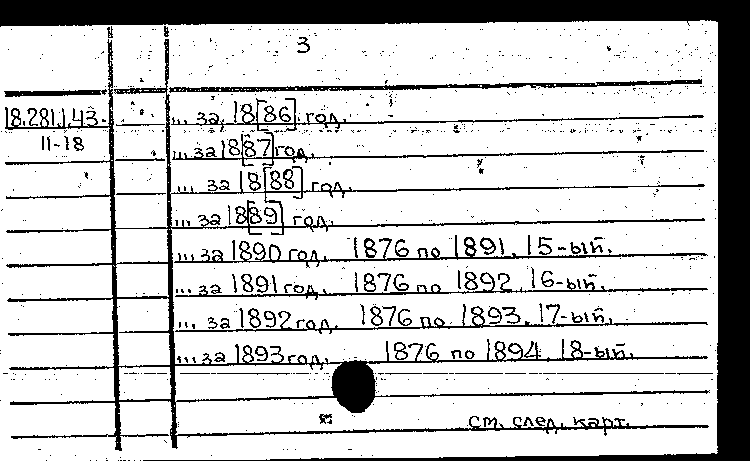 3
18.281.1.43.
11-18
... за 18[86] год.
... за 18[87] год.
... за 18[88] год.
... за 18[89] год.
... за 1890 год. 1876 по 1891. 15-ый.
... за 1891 год. 1876 по 1892. 16-ый.
... за 1892 год. 1876 по 1893. 17-ый.
... за 1893 год. 1876 по 1894. 18-ый.
см. след. карт.